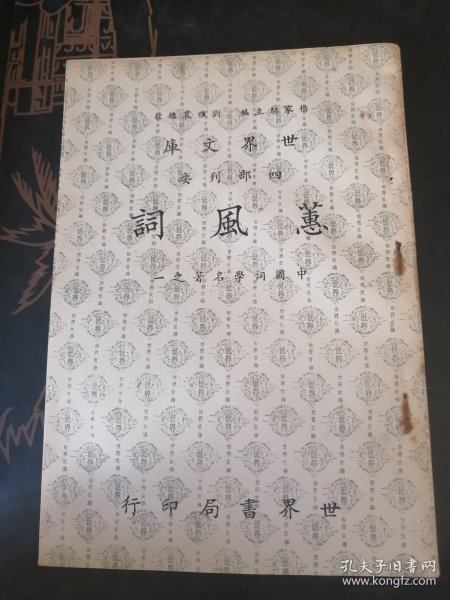 楊家駱主編 劉雅農總校
世界文庫
四部刊要
蕙風詞
中國詞學名著之一
世界書局印行
孔夫子旧书网
www.kongfz.com